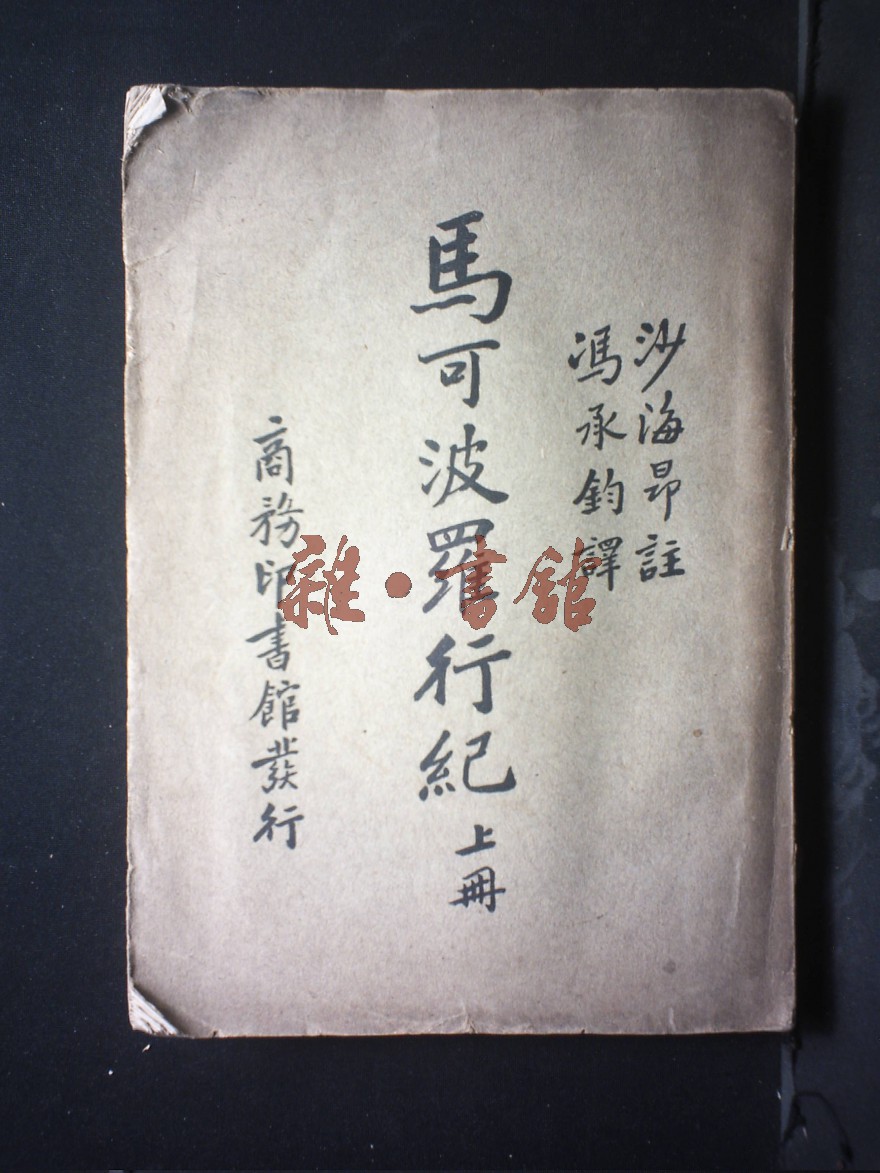 沙海昂註
馮承鈞譯
馬可波羅行紀
上冊
商務印書館發行
雜·書館